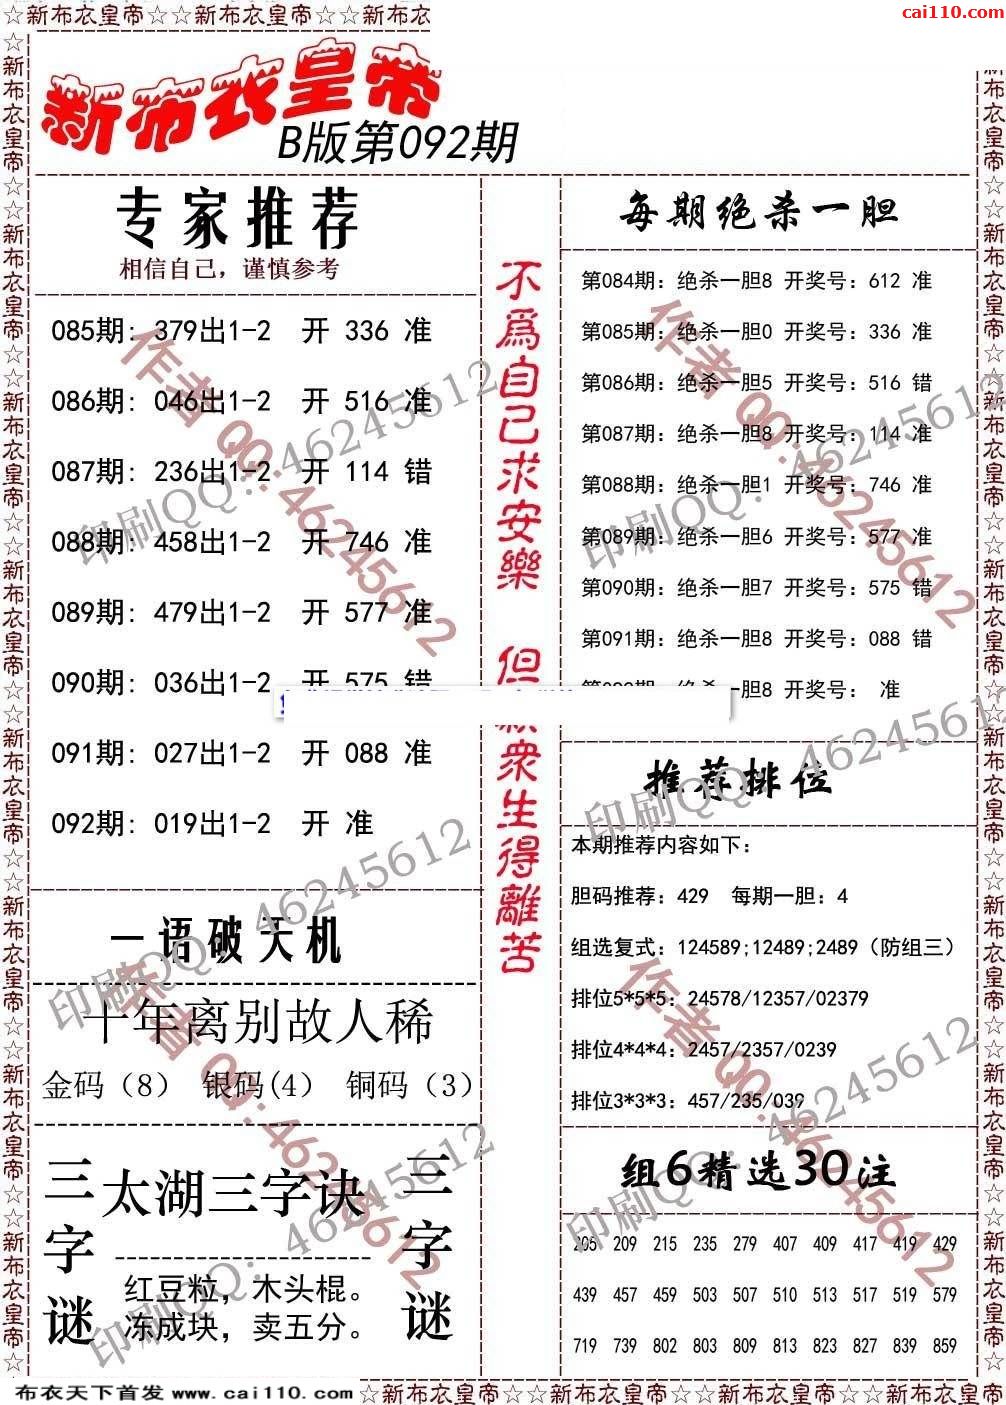 ☆新布衣皇帝☆☆新布衣皇帝☆☆新布衣皇帝
cai110.com
新布衣皇帝
B版第092期
专家推荐
相信自己，谨慎参考
085期: 379出1-2 开 336 准
086期: 046出1-2 开 516 准
087期: 236出1-2 开 114 错
088期: 458出1-2 开 746 准
089期: 479出1-2 开 577 准
090期: 036出1-2 开 575 错
091期: 027出1-2 开 088 准
092期: 019出1-2 开 准
一语破天机
十年离别故人稀
金码（8） 银码(4） 铜码（3）
三字谜
太湖三字诀
红豆粒，木头棍。
冻成块，卖五分。
三字谜
不為自己求安樂
但 眾生得離苦
每期绝杀一胆
第084期: 绝杀一胆8 开奖号: 612 准
第085期: 绝杀一胆0 开奖号: 336 准
第086期: 绝杀一胆5 开奖号: 516 错
第087期: 绝杀一胆8 开奖号: 114 准
第088期: 绝杀一胆1 开奖号: 746 准
第089期: 绝杀一胆6 开奖号: 577 准
第090期: 绝杀一胆7 开奖号: 575 错
第091期: 绝杀一胆8 开奖号: 088 错
一胆8 开奖号: 准
推荐排位
本期推荐内容如下:
胆码推荐: 429 每期一胆: 4
组选复式: 124589;12489;2489（防组三）
排位5*5*5: 24578/12357/02379
排位4*4*4: 2457/2357/0239
排位3*3*3: 457/235/039
组6精选30注
205 209 215 235 279 407 409 417 419 429
439 457 459 503 507 510 513 517 519 579
719 739 802 803 809 813 823 827 839 859
作者 QQ:46245612
印刷QQ: 46245612
作者 QQ:46245612
印刷QQ: 46245612
印刷QQ: 46245612
印刷QQ: 46245612
作者 QQ:46245612
作者 QQ:46245612
印刷QQ: 46245612
印刷QQ: 46245612
布衣天下首发 www.cai110.com ☆新布衣皇帝☆☆新布衣皇帝☆☆新布衣皇帝☆☆新布衣皇帝☆